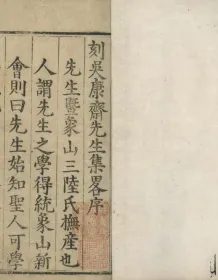 刻吳康齋先生集畧序
先生曁象山三陸氏撫產也
人謂先生之學得統象山新
會則曰先生始知聖人可學